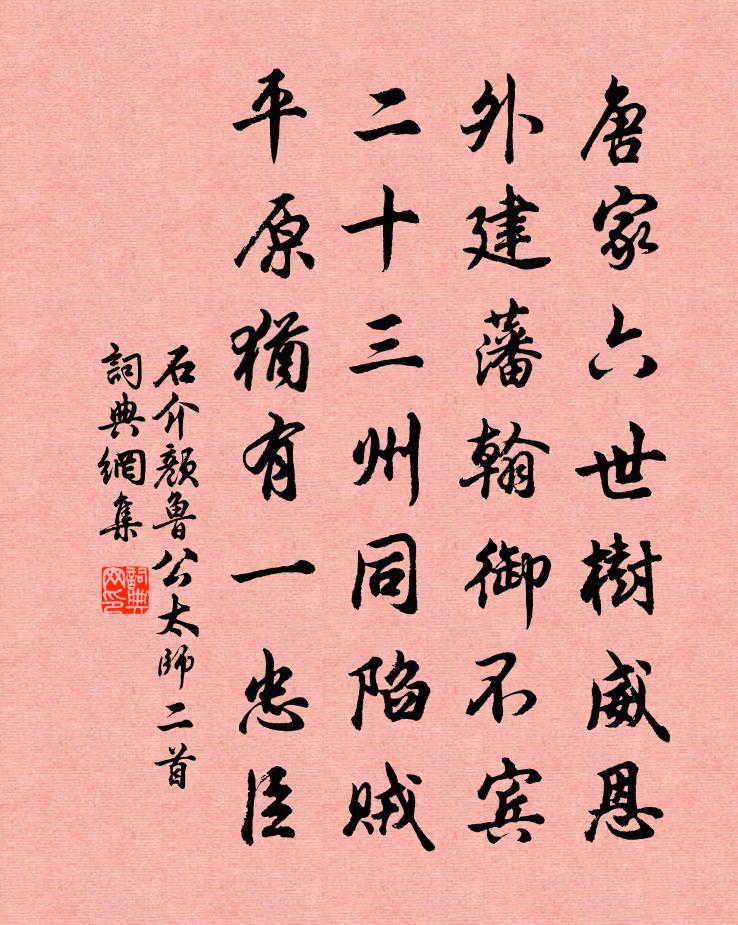 唐家六世樹威恩
外建藩翰御不賓
二十三州同陷賊
平原猶有一忠臣
石介顏魯公太師二首
詞典網集
詞典网印